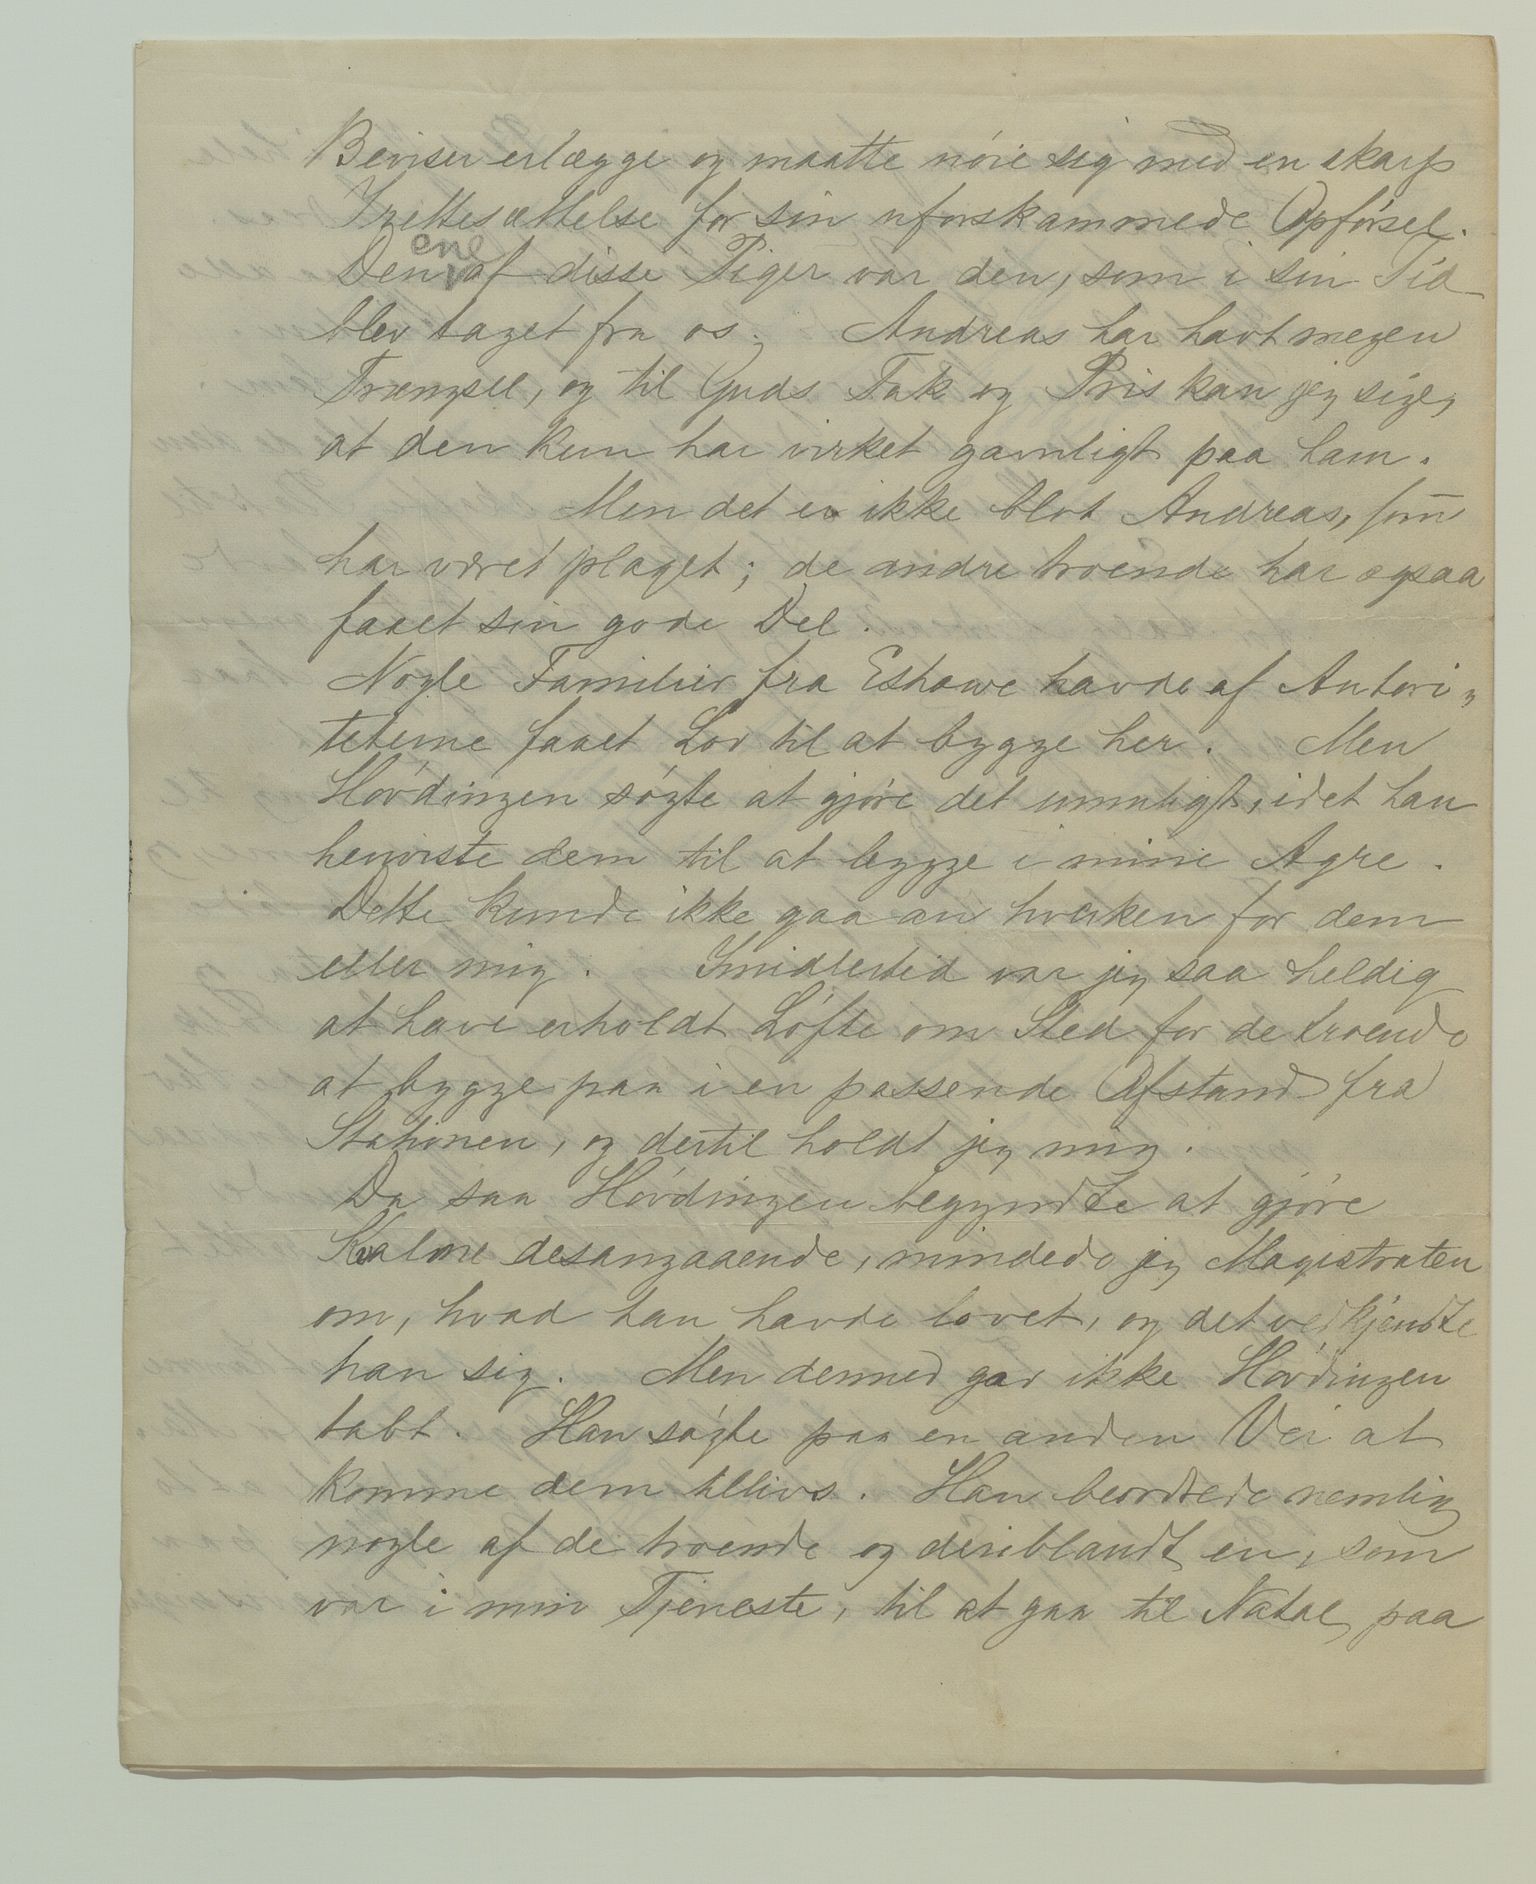 Beviser erlægge og maatte nöie sig med en skarp
Irettesættelse for sin uforskammede Opförsel.
Den ene af disse Piger var den, som i sin Tid
blev taget fra os. Andreas har havt megen
Trængsel, og til Guds Tak og Pris kan jeg sige,
at den kun har virket gavnligt paa ham.
Men det er ikke blot Andreas, som
har været plaget; de andre troende har ogsaa
faaet sin gode Del.
Nogle Familier fra Eshowe havde af Autori-
teterne faaet Lov til at bygge her. Men
Hövdingen sögte at gjöre det umuligt, idet han
henviste dem til at bygge i mine Agre.
Dette kunde ikke gaa an hverken for dem
eller mig. Imidlertid var jeg saa heldig
at have erholdt Löfte om Sted for de troende
at bygge paa i en passende Afstand fra
Stationen, og dertil holdt jeg mig.
Da saa Hövdingen begyndte at gjöre
Kvalme desangaaende, mindede jeg Magistraten
om, hvad han havde lovet, og det vedkjendte
han sig. Men dermed gav ikke Hövdingen
tabt. Han sögte paa en anden Vei at
komme dem tillivs. Han beordrede nemlig
nogle af de troende og deriblandt en, som
var i min Tjeneste, til at gaa til Natal paa